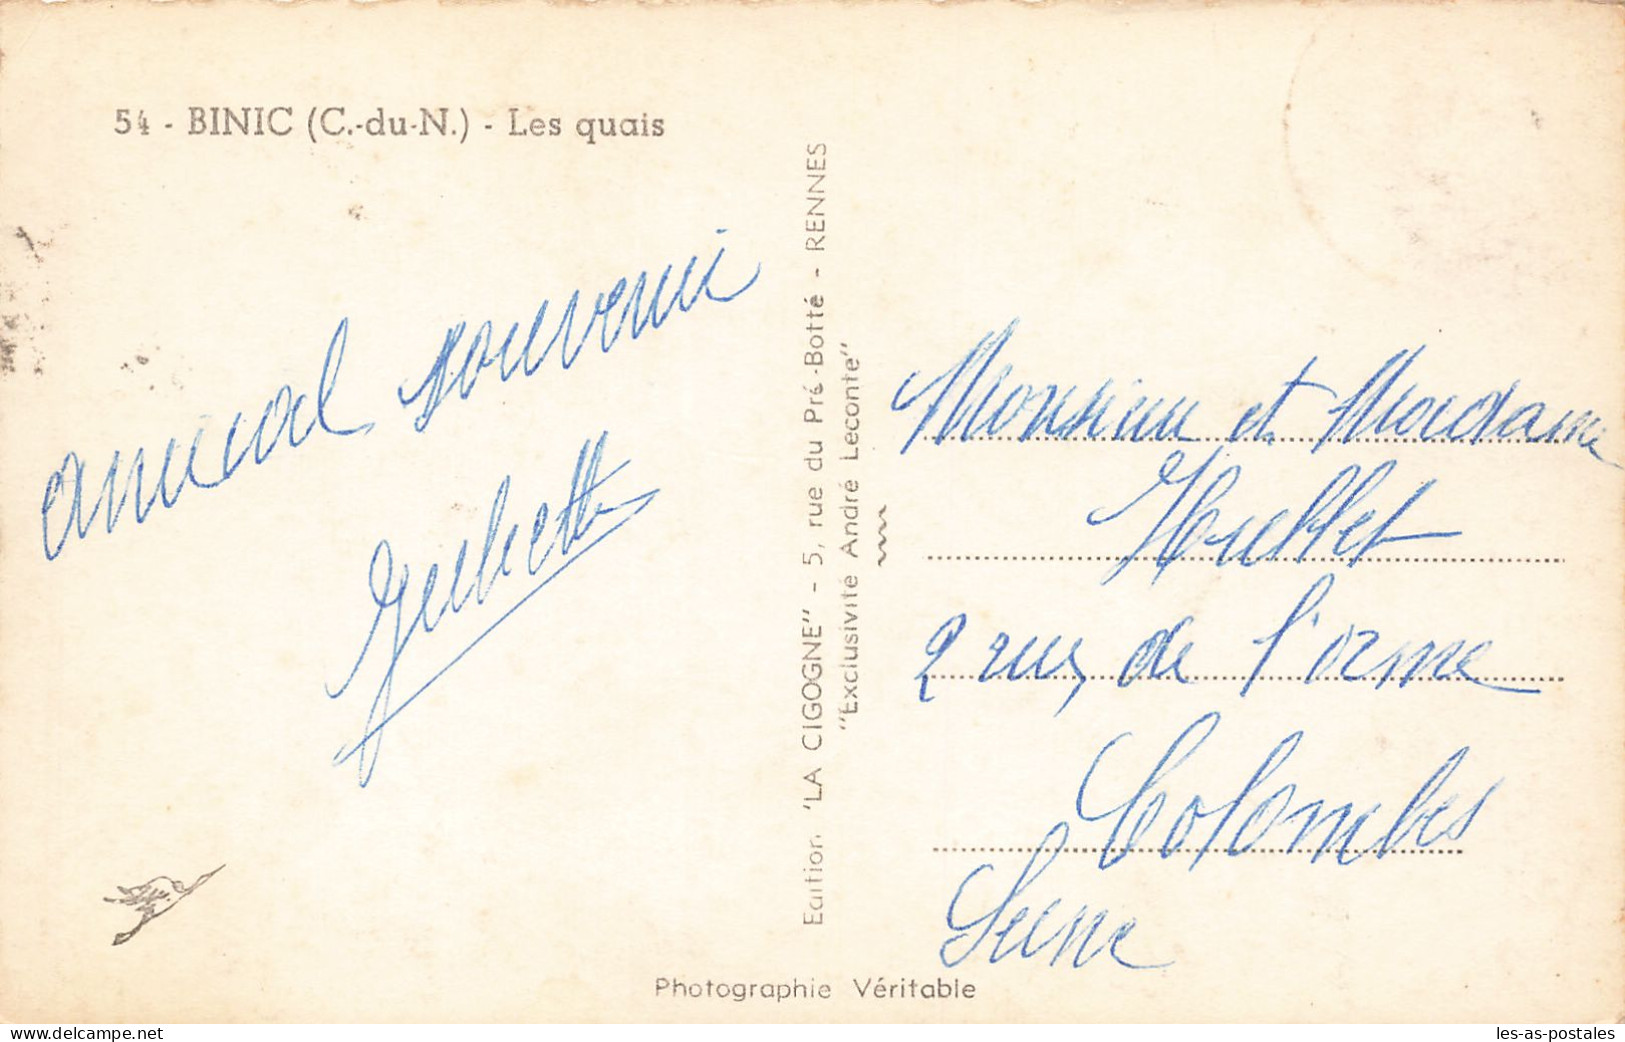 54 - BINIC (C.-du-N.) - Les quais
amical souvenir
Edition "LA CIGOGNE" - 5, rue du Pré-Botté - RENNES
"Exclusivité André Leconte"
Monsieur et Madame
2 rue de l'orme
Colombes
Seine
Photographie Véritable
www.delcampe.net
les-as-postales